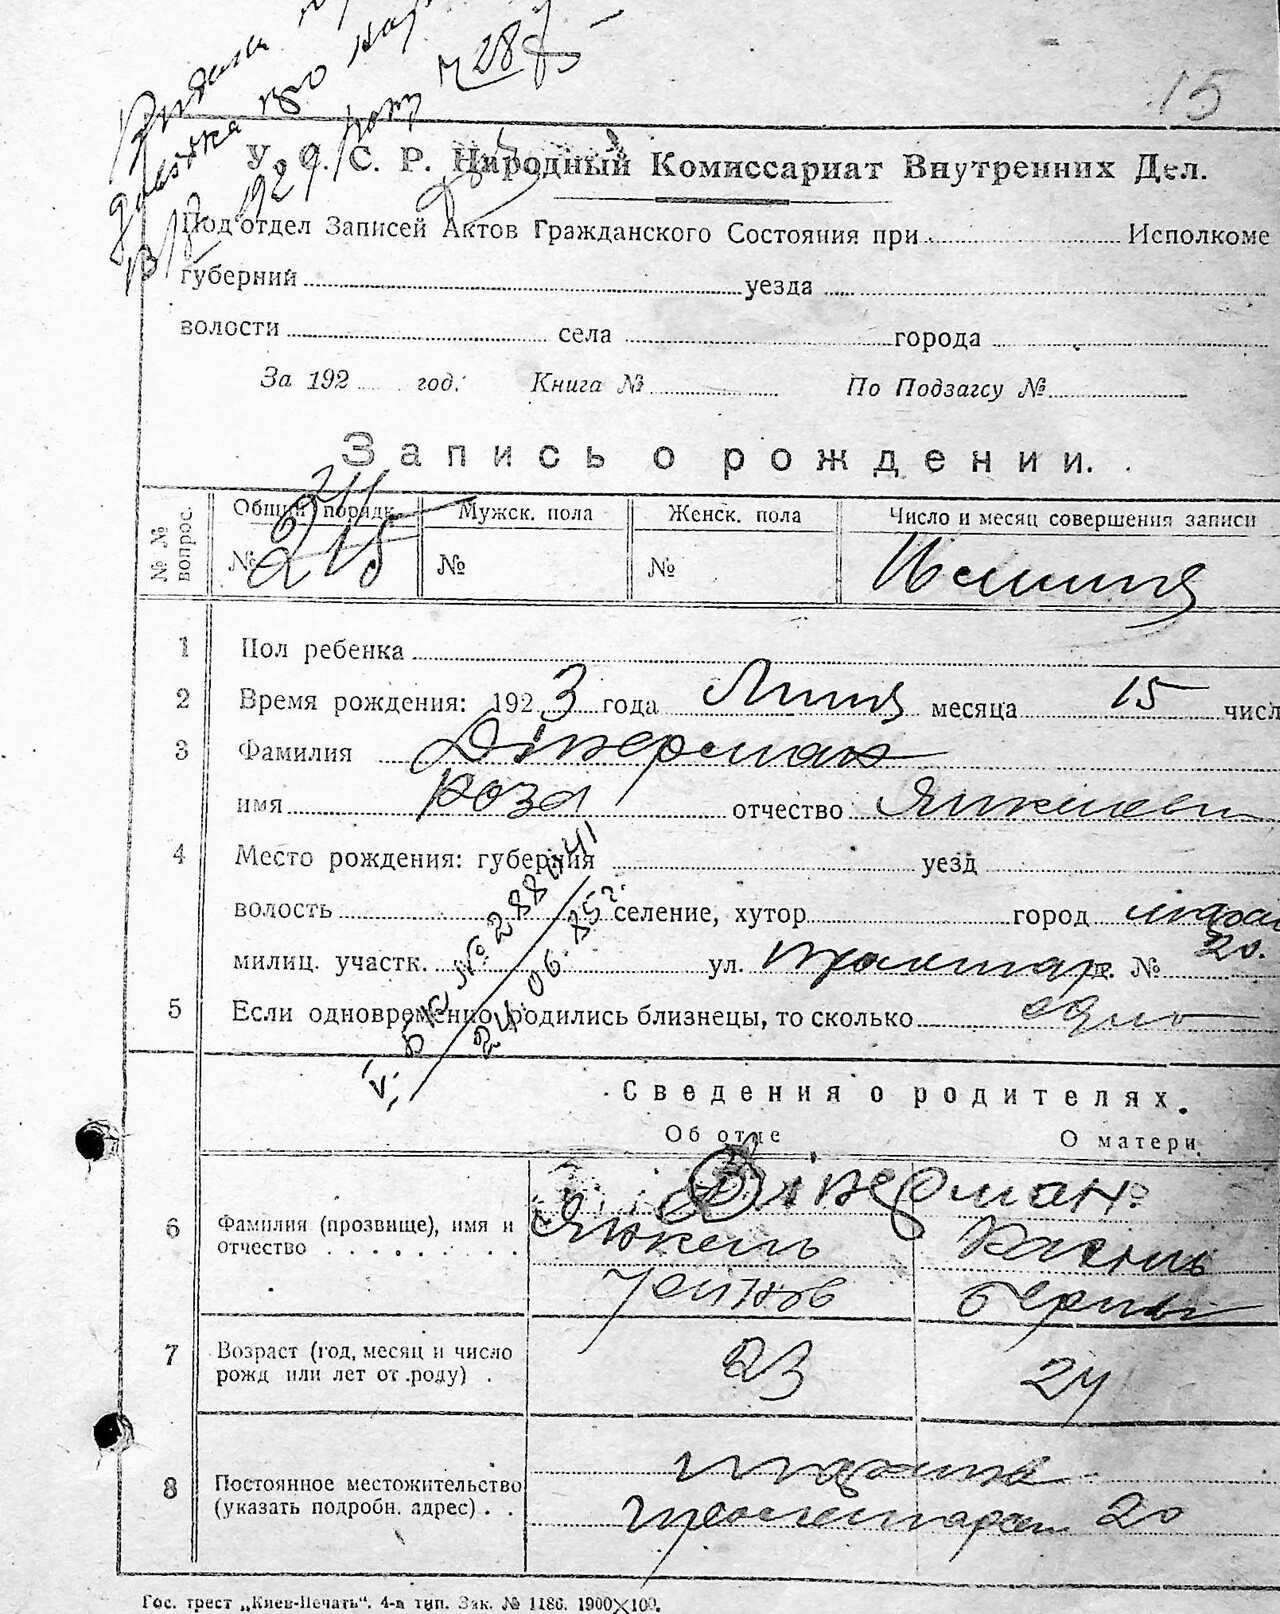 Видана
15
№ 287
довідка про
В 12 1929 року
У. С. С. Р. Народный Комиссариат Внутренних Дел.
Подотдел Записей Актов Гражданского Состояния при Исполкоме
губерний уезда
волости села города
За 192 год. Книга № По Подзагсу №
Запись о рождении.
№ № вопрос.
Общий порядк. Мужск. пола Женск. пола Число и месяц совершения записи
211
№ 215 № №
1 Пол ребенка
2 Время рождения: 1923 года Липня месяца 15 числ
3 Фамилия Діперман
имя Роза отчество
4 Место рождения: губерния уезд
волость селение, хутор город
20.
милиц. участк. ул. д. №
V-БК № 288141
24.06.85г.
5 Если одновременно родились близнецы, то сколько одно
Сведения о родителях.
Об отце О матери
6 Фамилия (прозвище), имя и отчество Діперман
Янкель
7 Возраст (год, месяц и число рожд или лет от роду) . 23 24
8 Постоянное местожительство (указать подробн. адрес) . .
20
Гос. трест „Киев-Печать“. 4-я тип. Зак. № 1186. 1900×100.